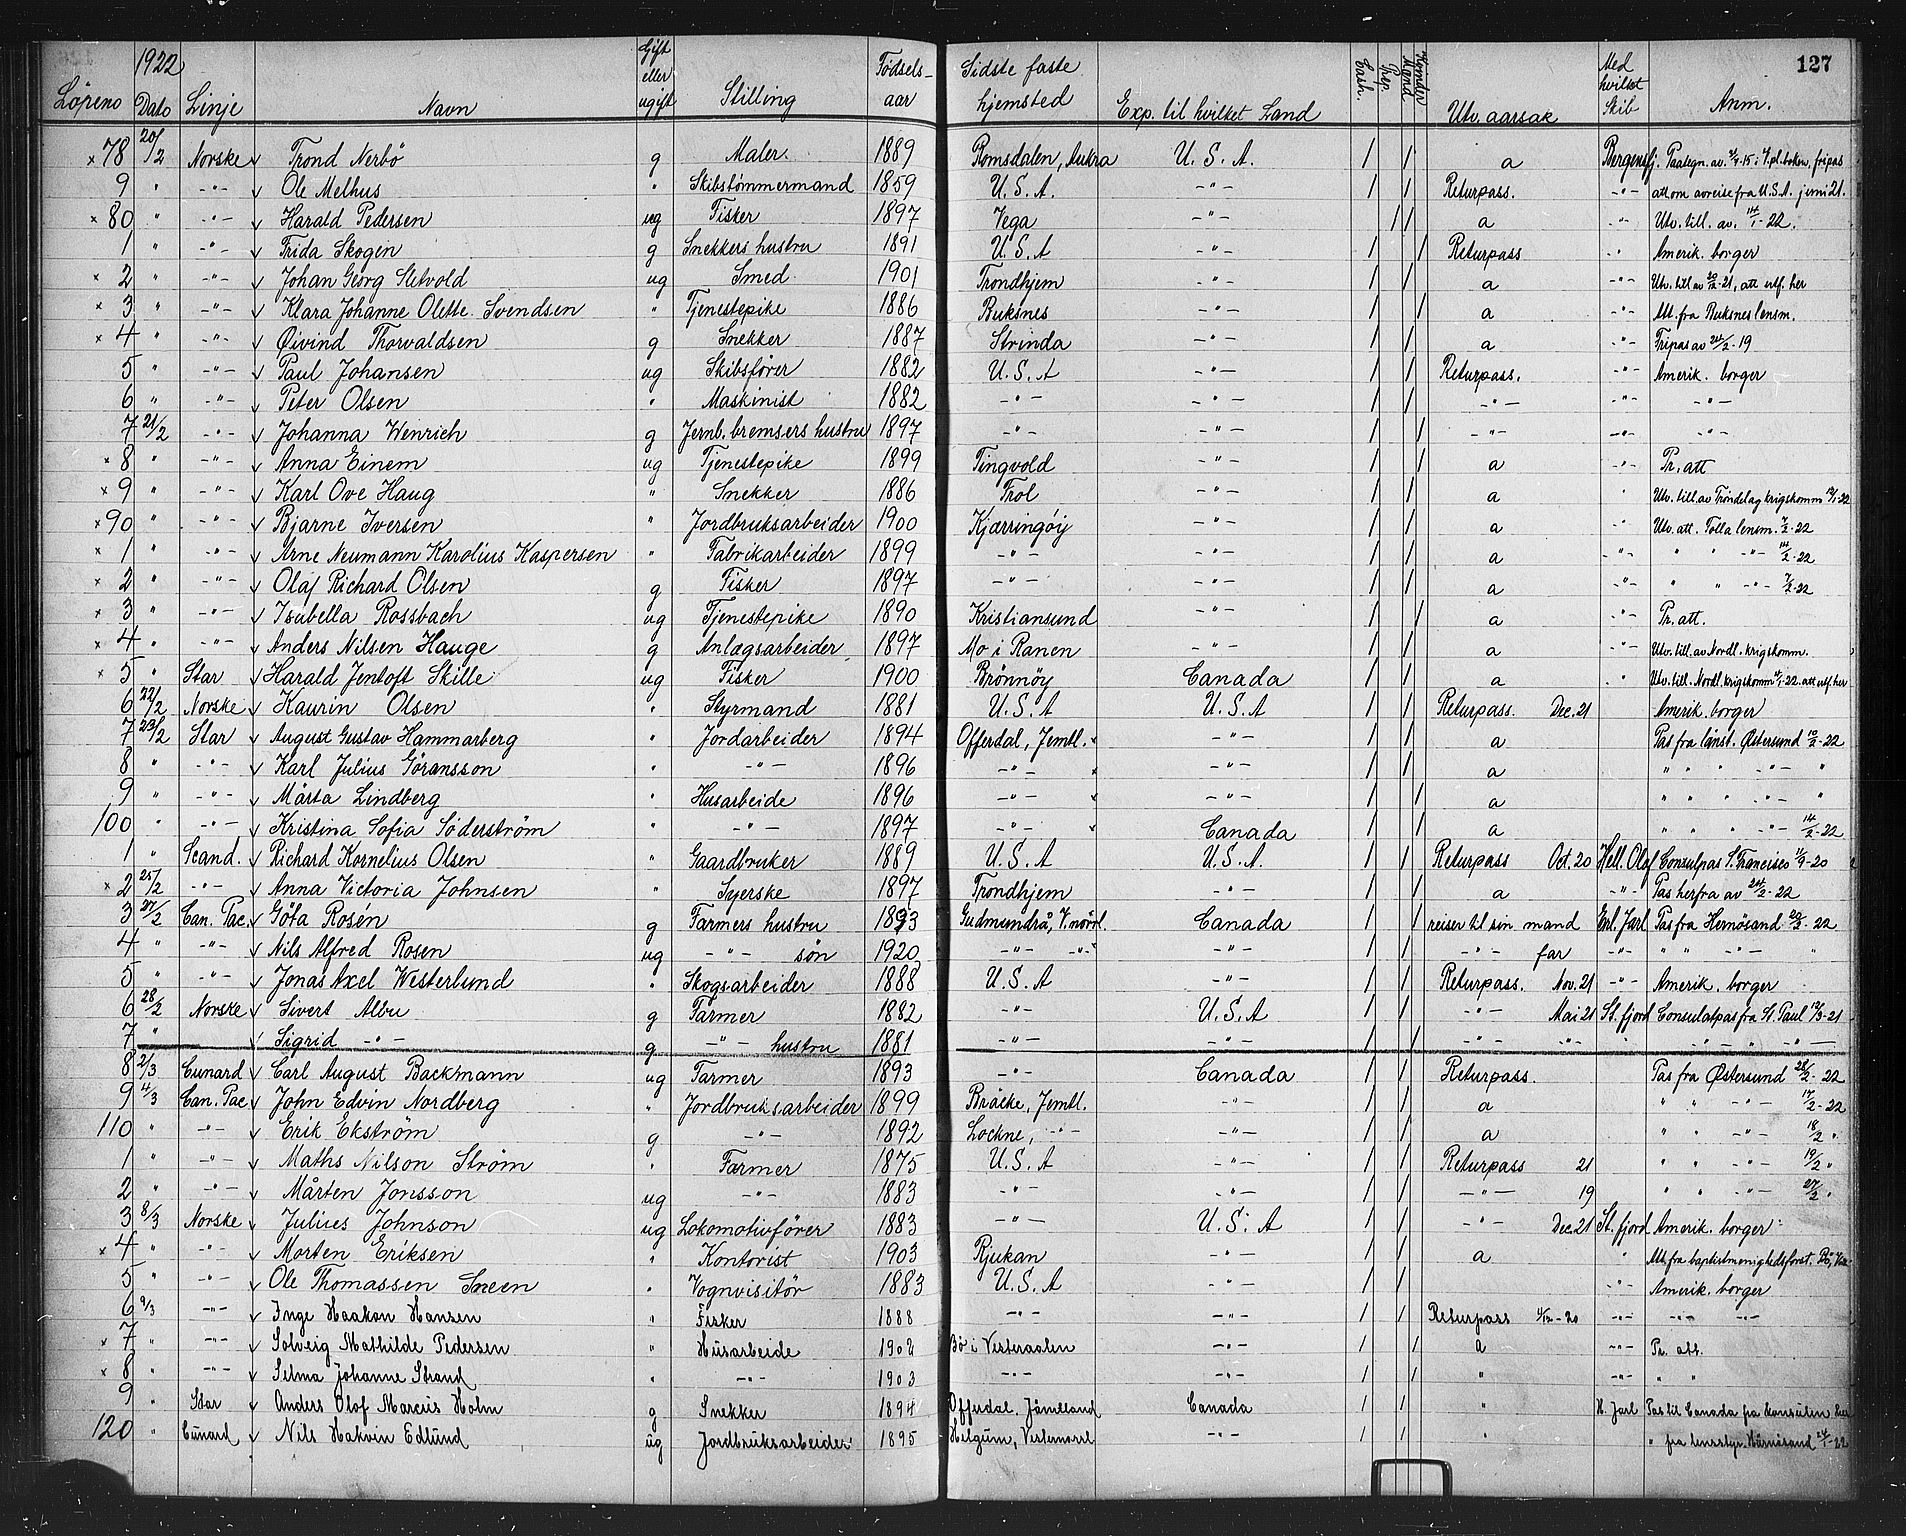 127
1922
Løpeno Dato Linje Navn Gift eller ugift Stilling Fødsels-aar Sidste faste hjemsted Exp. til hvilket Land Cash. Prep. Mænd Kvinder Utv. aarsak Med hvilket Skib Anm.
× 78 20/2 Norske v Trond Nerbö g Maler. 1889 Romsdalen, Aukra U. S. A. / / a Bergensfj. Paategn. av. i s.pl.boken, fripas
9 " -"- v Ole Melhus " Skibstømmermand 1859 U. S. A. -"- / / Returpass. -"- att om avreise fra U.S.A. juni 21.
× 80 " -"- v Harald Pedersen ug Fisker 1897 Vega -"- / / a -"- Utv. till. av. 14/1-22.
1 " -"- v Frida Skogen g Snekkers hustru 1891 U. S. A -"- / / Returpass -"- Amerik. borger
× 2 " -"- v Johan Georg Sletvold ug Smed 1901 Trondhjem -"- / / a -"- Utv. till av 20/2-21, att utf. her
× 3 " -"- v Klara Johanne Olette Svendsen " Tjenestepike 1886 Buksnes -"- / / a -"- Att. fra Buksnes lensm.
× 4 " -"- v Øivind Thorvaldsen g Snekker 1887 Strinda -"- / / a -"- Fripas av 24/2-19
5 " -"- v Paul Johansen ug Skibsfører 1882 U. S. A -"- / / Returpass. -"- Amerik. borger
6 " -"- v Peter Olsen " Maskinist 1882 -"- -"- / / -"- -"- -"-
7 21/2 -"- v Johanna Wenrich g Jernb. bremsers hustru 1897 -"- -"- / / -"- -"- -"-
× 8 " -"- v Anna Einem ug Tjenestepike 1899 Tingvold -"- / / a -"- Pr. att
× 9 " -"- v Karl Ove Haug " Snekker 1886 Frol -"- / / a " Utv. till. av Trøndelag krigskomm 12/1-22
× 90 " -"- v Bjarne Iversen " Jordbruksarbeider 1900 Kjærringøy -"- / / a -"- Utv. att. Folla lensm. 7/2-22
× 1 " -"- v Arne Neumann Karolius Kaspersen " Fabrikarbeider 1899 -"- -"- / / a -"- " " -"- 14/2-22
× 2 " -"- v Olaf Richard Olsen g Fisker 1897 -"- -"- / / a -"- " " -"- 7/2-22
× 3 " -"- v Isabella Rossbach ug Tjenestepike 1890 Kristiansund -"- / / a -"- Pr. att.
× 4 " -"- v Anders Nilsen Hauge g Anlægsarbeider 1897 Mo i Ranen -"- / / a -"- Utv. till. av Nordl. krigskomm.
× 5 " Star v Harald Jentoft Skille ug Fisker 1900 Brönnöy Canada / / a -"- Utv. till. Nordl. krigskomm 22. att utf. her
6 22/2 Norske v Kaurin Olsen " Styrmand 1881 U. S. A U. S. A / / Returpass. Dec. 21 Amerik. borger
7 23/2 Star v August Gustav Hammarberg " Jordarbeider 1894 Offerdal, Jemtl. -"- / / a Pas fra länst. Østersund 10/2-22
8 " -"- v Karl Julius Göransson " -"- 1896 -"- -"- / / a " " " -"- "
9 " -"- v Märta Lindberg " Husarbeide 1896 -"- -"- / / a " " " -"- "
100 " -"- v Kristina Sofia Söderström " -"- 1897 -"- Canada / / a " " " -"- 14/2-22
1 " Scand. v Richard Kornelius Olsen " Gaardbruker 1889 U. S. A U. S. A. / / Returpass Oct. 20 Hell. Olaf Consulpas S. Francisco 11/9-20
× 2 25/2 -"- v Anna Victoria Johnsen " Syerske 1897 Trondhjem -"- / / a -"- Pas herfra av 24/2-22
3 27/2 Can. Pac. v Göta Rosén g Farmers hustru 1893 Gudmundrå, V.norrl. Canada / / reiser til sin mand Erl. Jarl Pas fra Hernösand 22
4 " -"- v Nils Alfred Rosen ug -"- sön 1920 -"- -"- -"- / / -"- far -"- " " -"- "
5 " -"- v Jonas Axel Westerlund " Skogsarbeider 1888 U. S. A -"- / / Returpass. Nov. 21 -"- Amerik. borger
6 28/2 Norske v Sivert Albu g Farmer 1882 -"- U. S. A / / -"- Mai 21 St. fjord Consulatpas fra St. Paul 12/3-21
7 " v Sigrid -"- g -"- hustru 1881 -"- -"- / / -"- -"- -"- " -"-
8 2/3 Cunard v Carl August Backmann ug Farmer 1893 -"- Canada / / Returpass. Pas fra Østersund 28/2-22
9 4/3 Can. Pac v John Edvin Nordberg " Jordbruksarbeider 1899 Bräcke, Jemtl. -"- / / a " " -"- 17/2-22
110 " -"- v Erik Ekström g -"- 1892 Lockne, -"- -"- / / a " " -"- 18/2 "
1 " -"- v Maths Nilson Ström " Farmer 1875 U. S. A -"- / / Returpass 21 " " -"- 19/2 "
2 " -"- v Mårten Jonsson ug -"- 1883 -"- -"- / / -"- 19 " " -"- 27/2 "
3 8/3 Norske v Julius Johnson ug Lokomotivförer 1883 -"- U. S. A / / -"- Dec. 21 St. fjord Amerik. borger
× 4 " -"- v Morten Eriksen " Kontorist 1903 Rjukan -"- / / a " Att. fra baptistmenighedsforst.
5 " -"- v Ole Thomassen Sneen " Vognvisitör 1883 U. S. A -"- / / -"- Amerik. borger
6 9/3 -"- v Inge Haakon Hansen " Fisker 1888 -"- -"- / / Returpass 4/12-20 -"- -"- -"-
× 7 " -"- v Solveig Mathilde Pedersen " Husarbeide 1902 Bö i Vesteraalen -"- / / a -"- Pr. att.
× 8 " -"- v Selma Johanne Strand " -"- 1903 -"- -"- / / " -"- " "
9 " Star v Anders Olof Marcus Holm g Snekker 1894 Offerdal, Jämtland Canada / / " H. Jarl Pas til Canada fra Konsulen her
120 " Cunard v Nils Hakvin Edlund ug Jordbruksarbeider 1895 Helgum, Vesternorrl -"- / / " " fra lensstyr. Härnösand 24/1-22